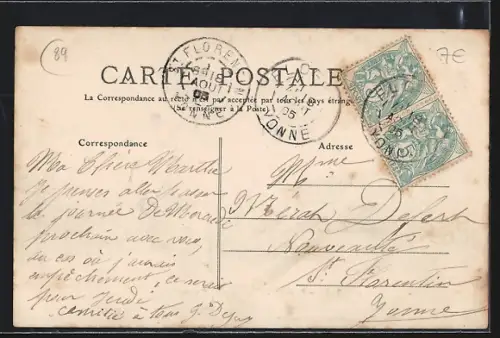 89
7E
CARTE POSTALE
La Correspondance au recto n'est pas acceptée par tous les pays étrangers
(Se renseigner à la Poste)
ST FLORENTIN
AOUT
05
YONNE
YONNE
05
Correspondance
Adresse
Ma Chère Marthe
Je pense aller passer
la journée De Mercredi
prochain avec vous,
au cas où j'aurais
empêchement, ce serait
pour jeudi
amitiés à tous
Mme
Delert
Nouveautés
St Florentin
Yonne